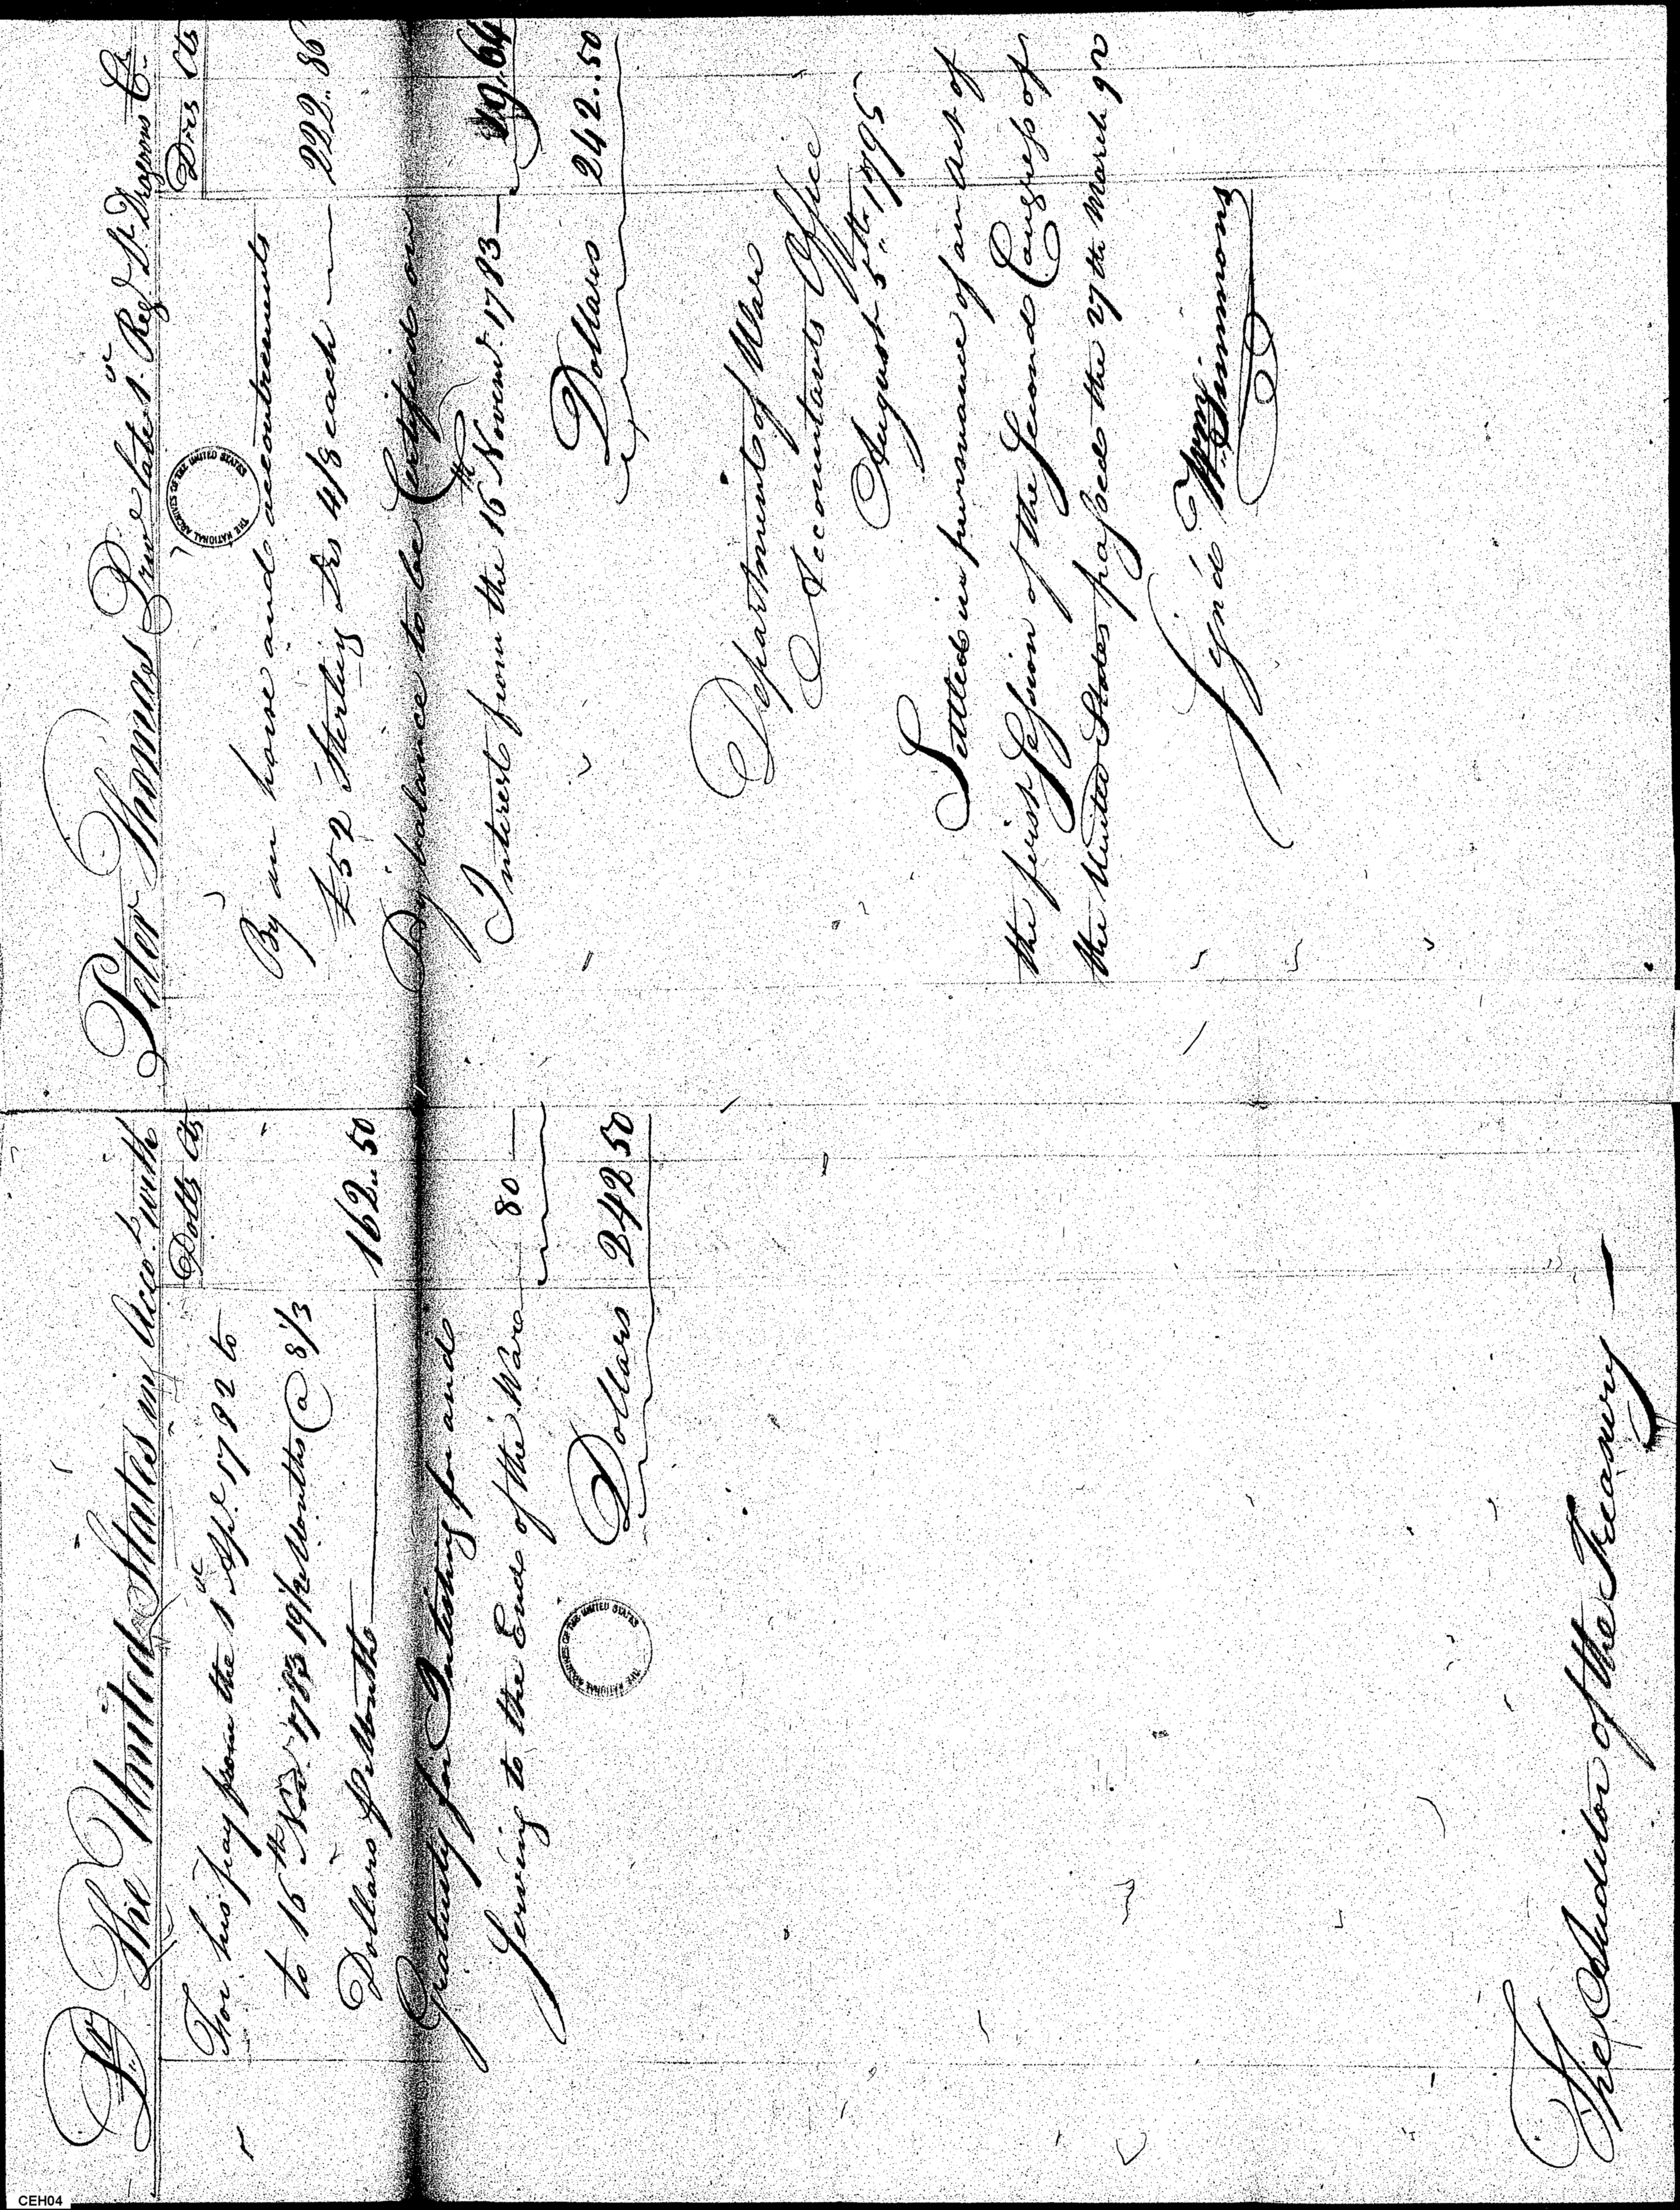 Dr The United States in Accot. with
Dolls Cts
For his pay from the 1st Apl. 1782 to
to 16th Nov. 1783 19 1/2 Months @ 8 1/3
Dollars Pr Month 162.. 50
Gratuity for Inlisting for and
Serving to the End of the War 80
Dollars 242 50
Peter Thomas Private late 1st Regt. Lt. Dragoons Cr.
Drs Cts
By an horse and accoutrements
£52 Sterling Drs 4/8 each 222.. 86
By balance to be Certified on
Interest from the 16th Novemr. 1783 19.. 64
Dollars 242.. 50
Department of War
Accountants Office
August 5th.. 1795
Settled in pursuance of an act of
the first Session of the Second Congress of
the United States passed the 27th March 92
Sign'd Wm Simmons
The Auditor of the Treasury
THE NATIONAL ARCHIVES OF THE UNITED STATES
THE NATIONAL ARCHIVES OF THE UNITED STATES
CEH04